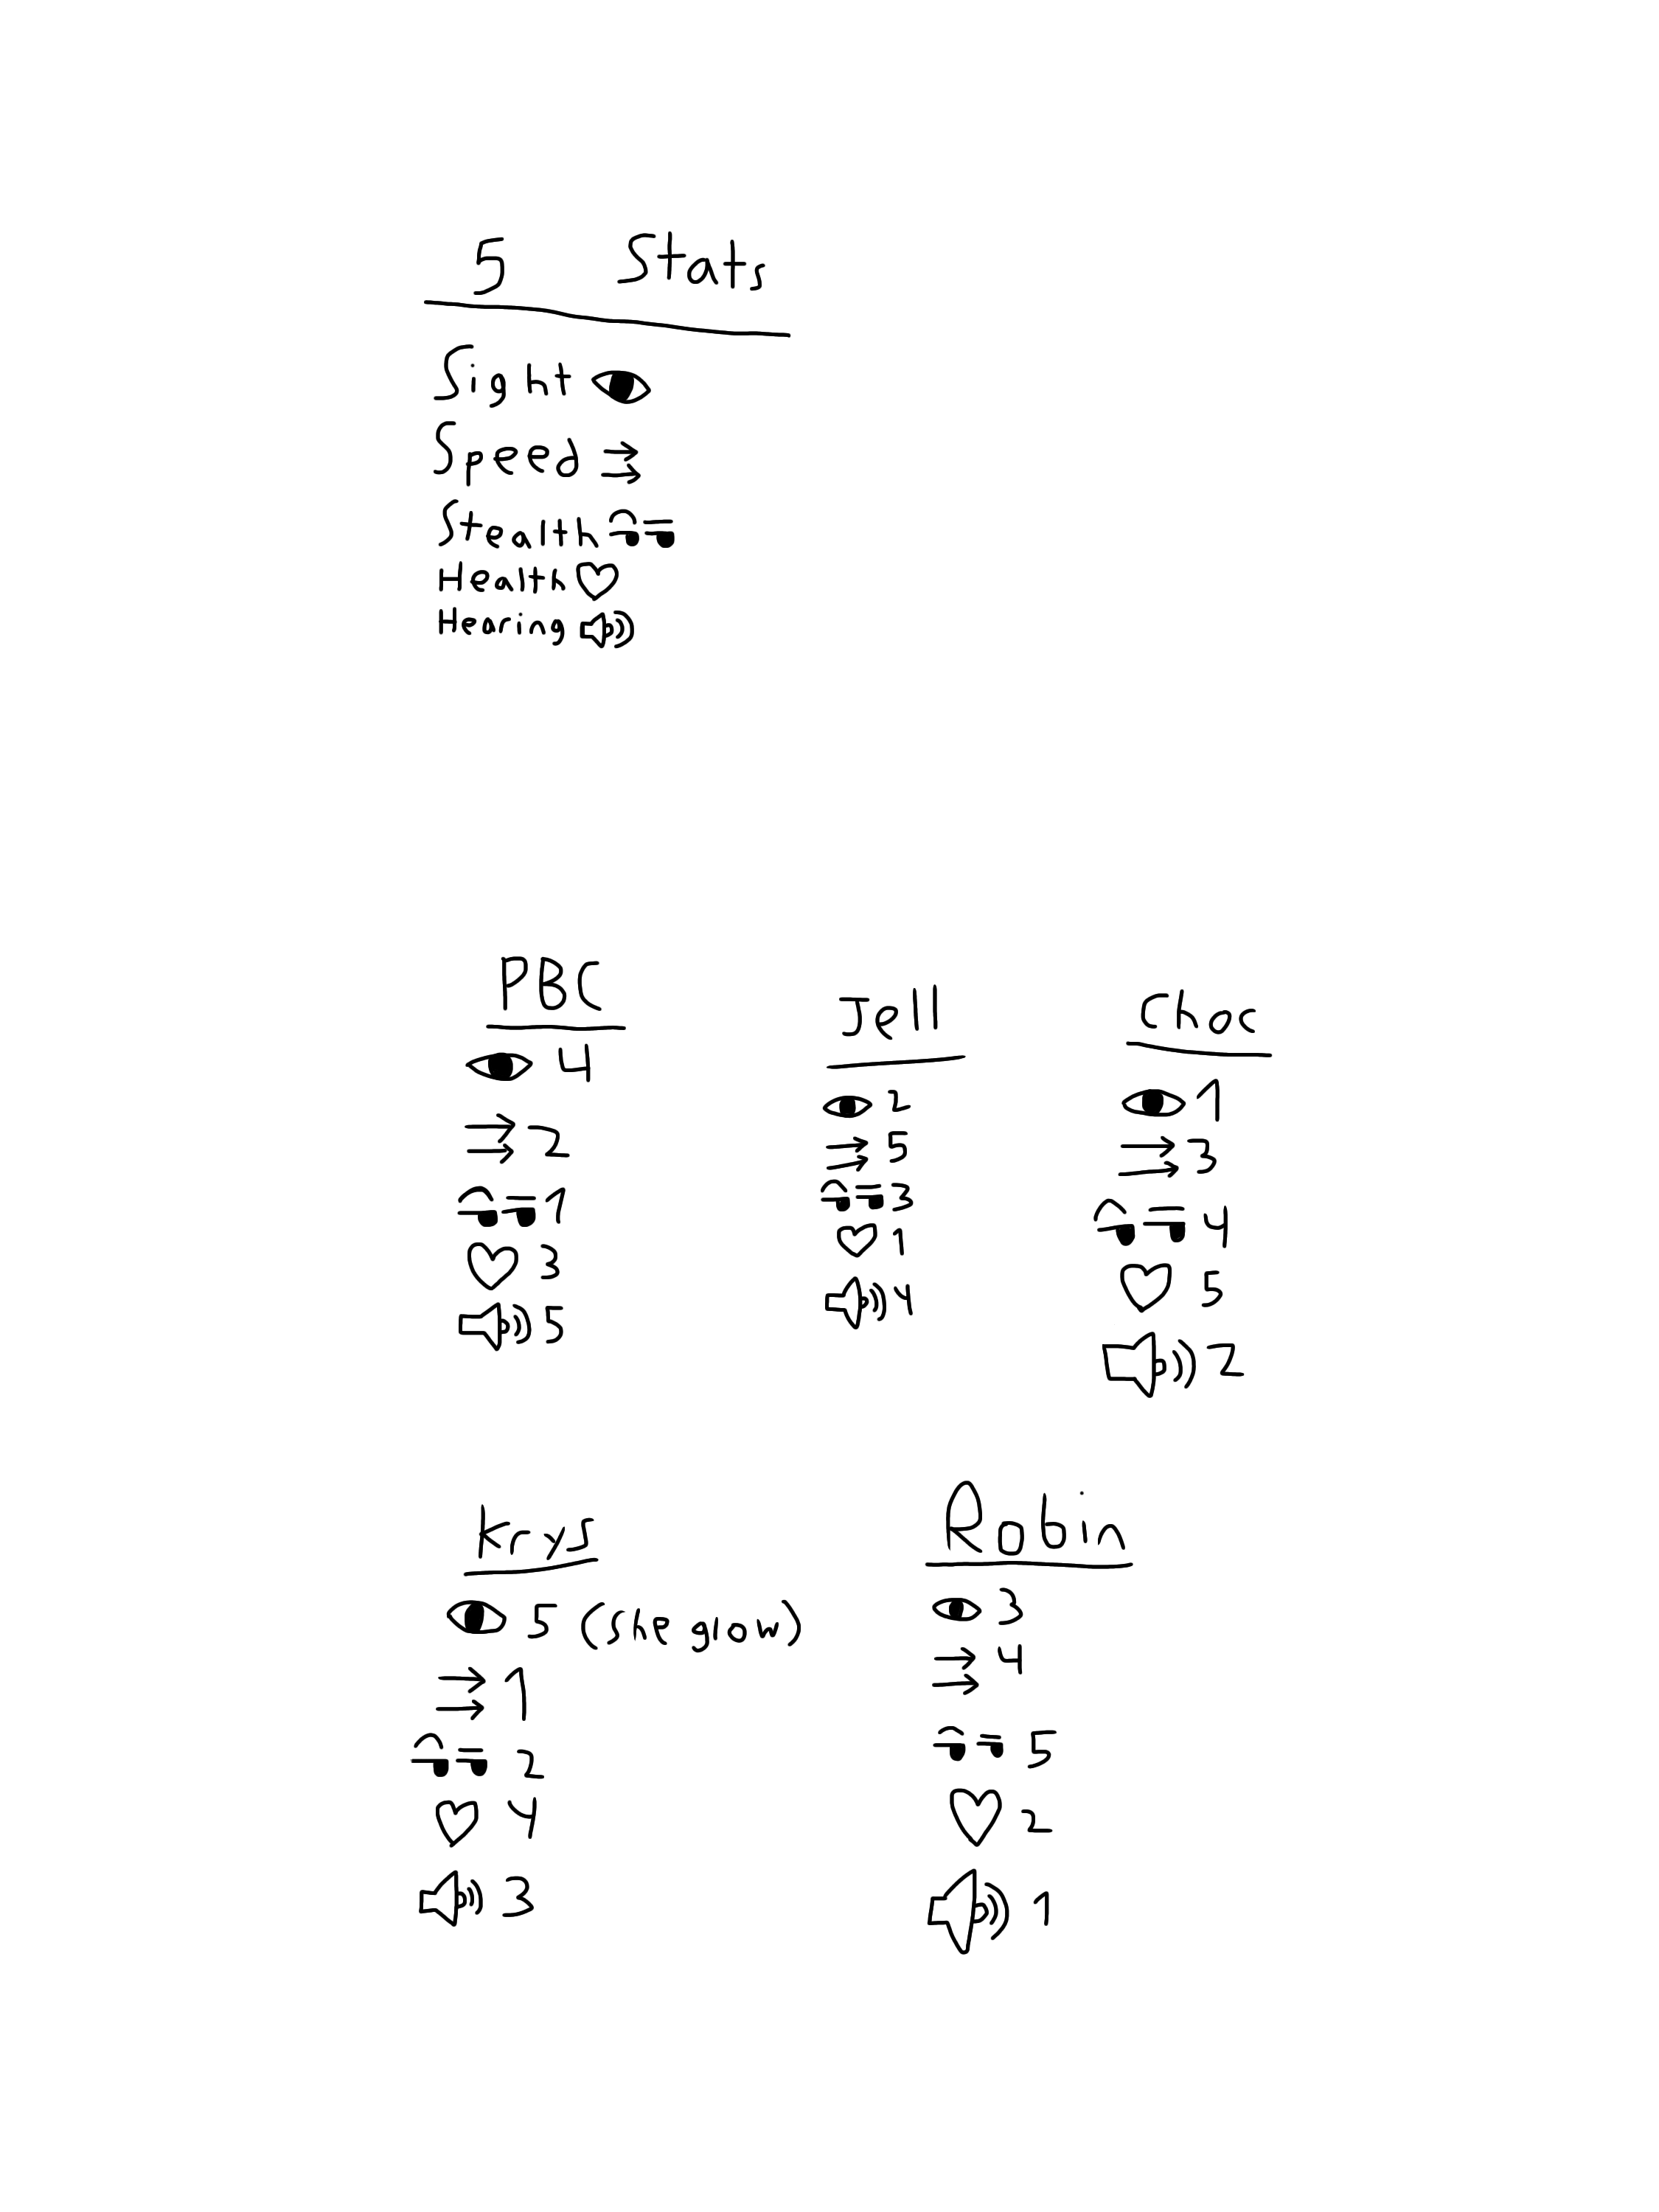 5 Stats
Sight
Speed
Stealth
Health
Hearing
PBC
4
2
1
3
5
Jell
2
5
3
1
4
Choc
1
3
4
5
2
Krys
5 (She glow)
1
2
4
3
Robin
3
4
5
2
1